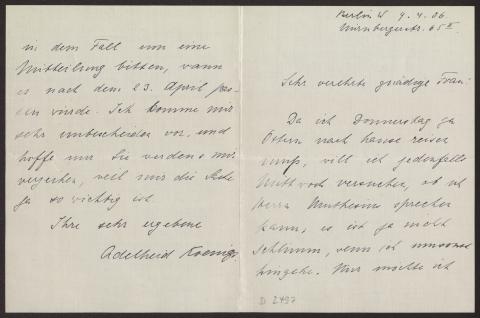 Berlin W 9.4.06
Nürnbergerstr. 65 II
Sehr verehrte gnädige Frau!
Da ich Donnerstag ja
Ostern nach hause reisen
muss, will ich jedenfalls
Mittwoch versuchen, ob ich
Herrn Muthesius sprechen
kann, es ist ja nicht
schlimm, wenn ich umsonst
hingehe. Nur möchte ich
in dem Fall um eine
Mitteilung bitten, wann
es nach dem 23. April pas-
sen würde. Ich komme mir
sehr unbescheiden vor, und
hoffe nur Sie werden's mir
verzeihen, weil mir die Sache
ja so wichtig ist.
Ihre sehr ergebene
Adelheid Koenigs.
D 2497